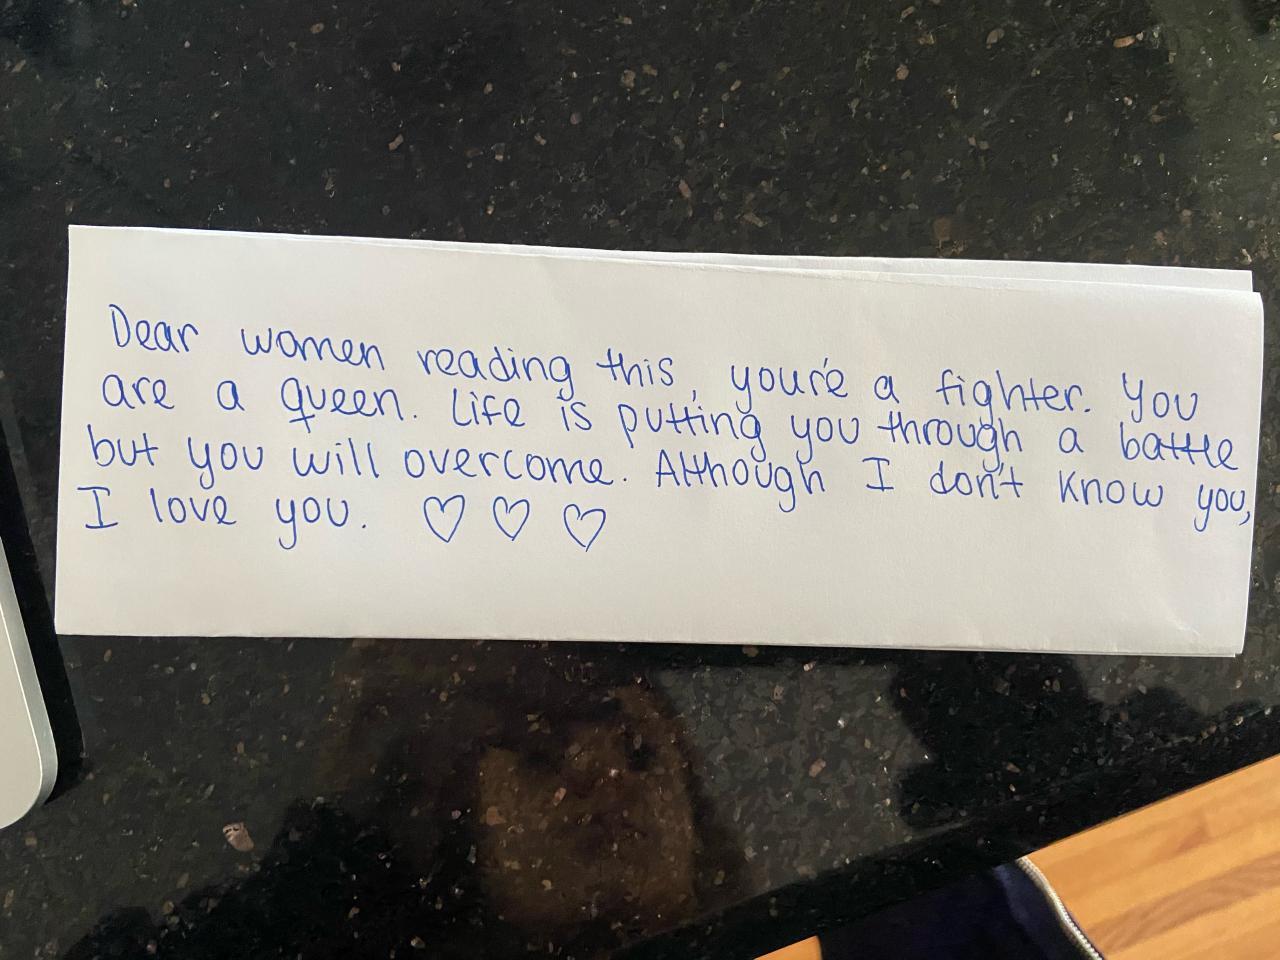 Dear women reading this, you're a fighter. You
are a queen. Life is putting you through a battle
but you will overcome. Although I don't know you,
I love you. ♡ ♡ ♡